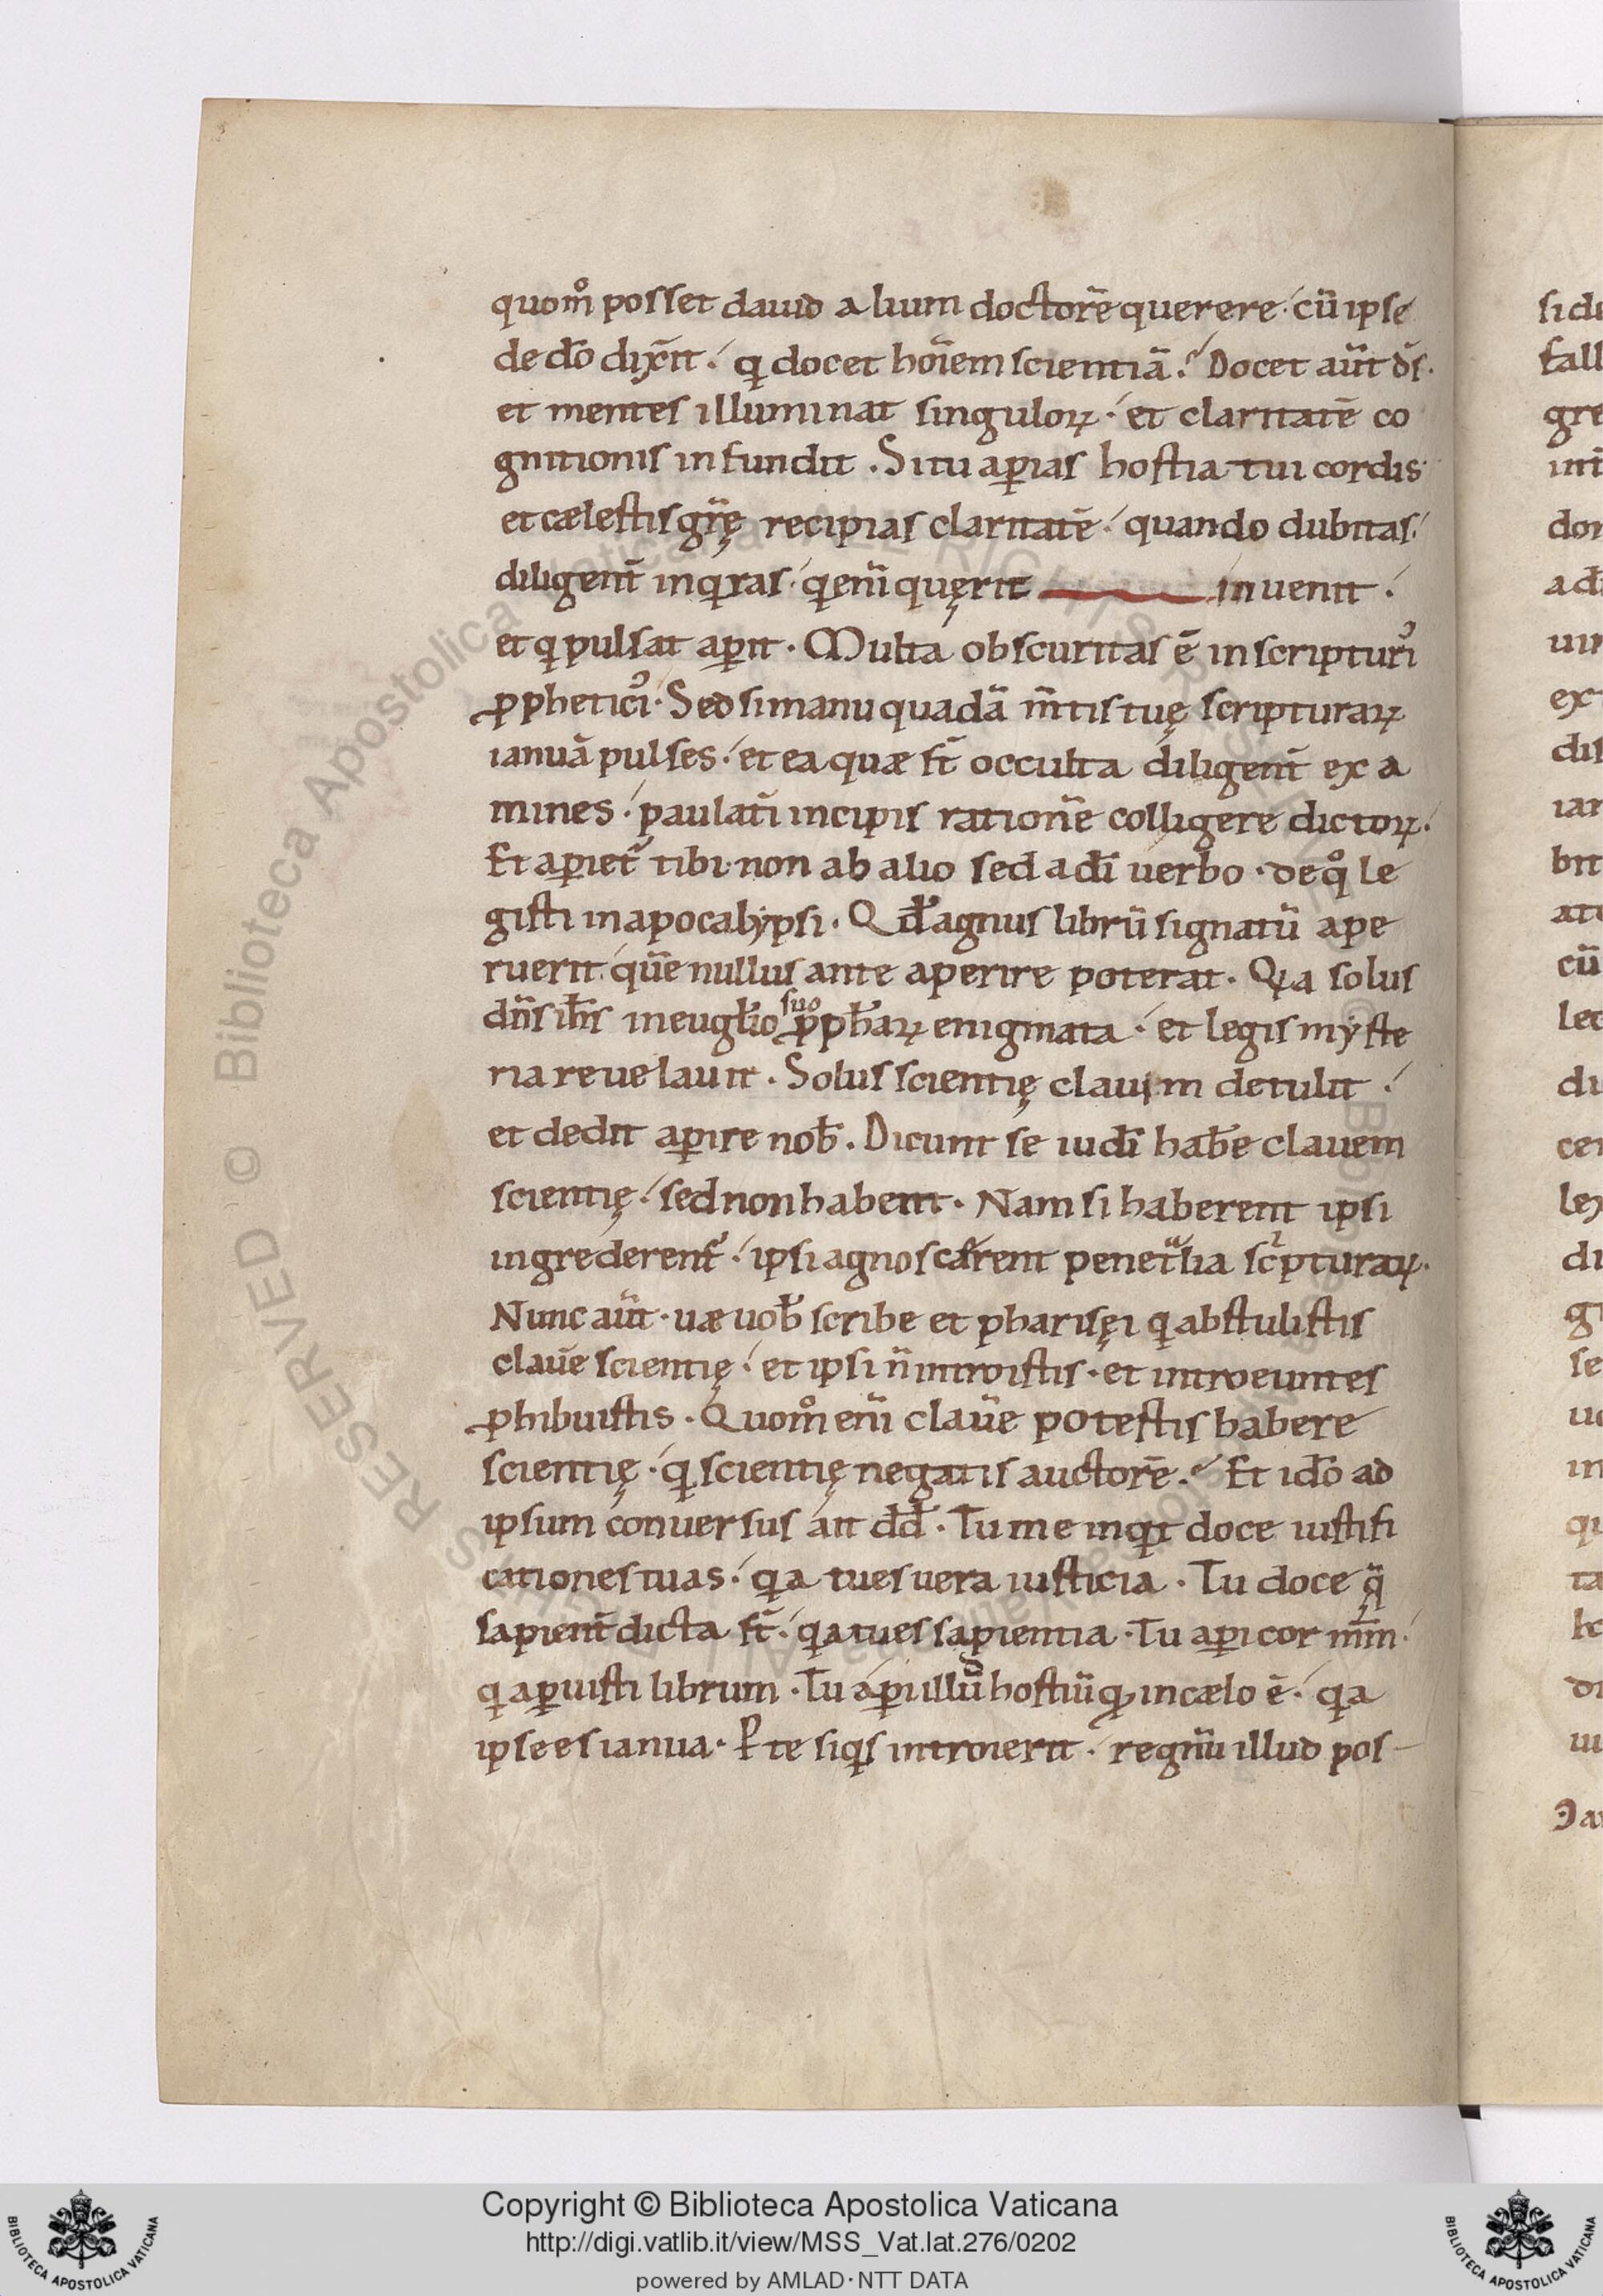 quom̊ posset dauid alium doctorē querere· cū ipse
de dō dix̄it· q̇ docet hōiem scientiā? Docet aūt ds̄·
et mentes illuminat singuloꝝ· et claritatē co
gnitionis infundit. Si tu aꝑias hostia tui cordis
et cælestis gr̄ę recipias claritatē· quando dubitas·
diligent̄ inq̇ras· q̇ enī quęrit inuenit·
et q̇ pulsat aꝑit· Multa obscuritas ē in scripturi᷒
ꝓphetici᷒· Sed si manu quadā m̄tis tuę scripturaꝝ
ianuā pulses· et ea quæ st̄ occulta diligent̄ exa
mines· paulatī incipis rationē colligere dictoꝝ·
Et aꝑiet᷑ tibi· non ab alio sed a dī uerbo· de q̊ le
gisti in apocalẏpsi. Qđ agnus librū signatū ape
ruerit quē nullus ante aperire poterat· Qa solus
dn̄s ih̄s in eugl̄io suo ꝓph̄aꝝ enigmata· et legis mẏste
ria reuelauit. Solus scientię clauim detulit·
et dedit aꝑire nob̄. Dicunt se iudī hab̄e clauem
scientię· sed non habent. Nam si haberent ipsi
ingrederent᷑· ipsi agnoscerent penetᷓlia scͥpturaꝝ·
Nunc aūt· uæ uob̄ scribe et pharisęi q̇ abstulistis
clauē scientię· et ipsi n̄ introistis· et introeuntes
ꝓhibuistis. Quom̊ enī clauē potestis habere
scientię· q̇ scientię negatis auctorē? Et idō ad
ipsum conuersus ait dd̄· Tu me inq̇t doce iustifi
cationes tuas· q̇a tu es uera iusticia. Tu doce q̄
sapient̄ dicta st̄· q̇a tu es sapientia. Tu aꝑi cor m̄m·
q̇ aꝑuisti librum. Tu aꝑi illud hostiū qđ in cælo ē· q̇a
ipse es ianua· P̲ te siq̇s introierit· regnū illud pos-
si di
fall
gre
int
don
ad
uin
ex
dis
ian
bit
atu
cū
lec
du
cer
lex
du
gr
se
uo
in
qu
ta
di
iu
Copyright © Biblioteca Apostolica Vaticana
http://digi.vatlib.it/view/MSS_Vat.lat.276/0202
powered by AMLAD·NTT DATA